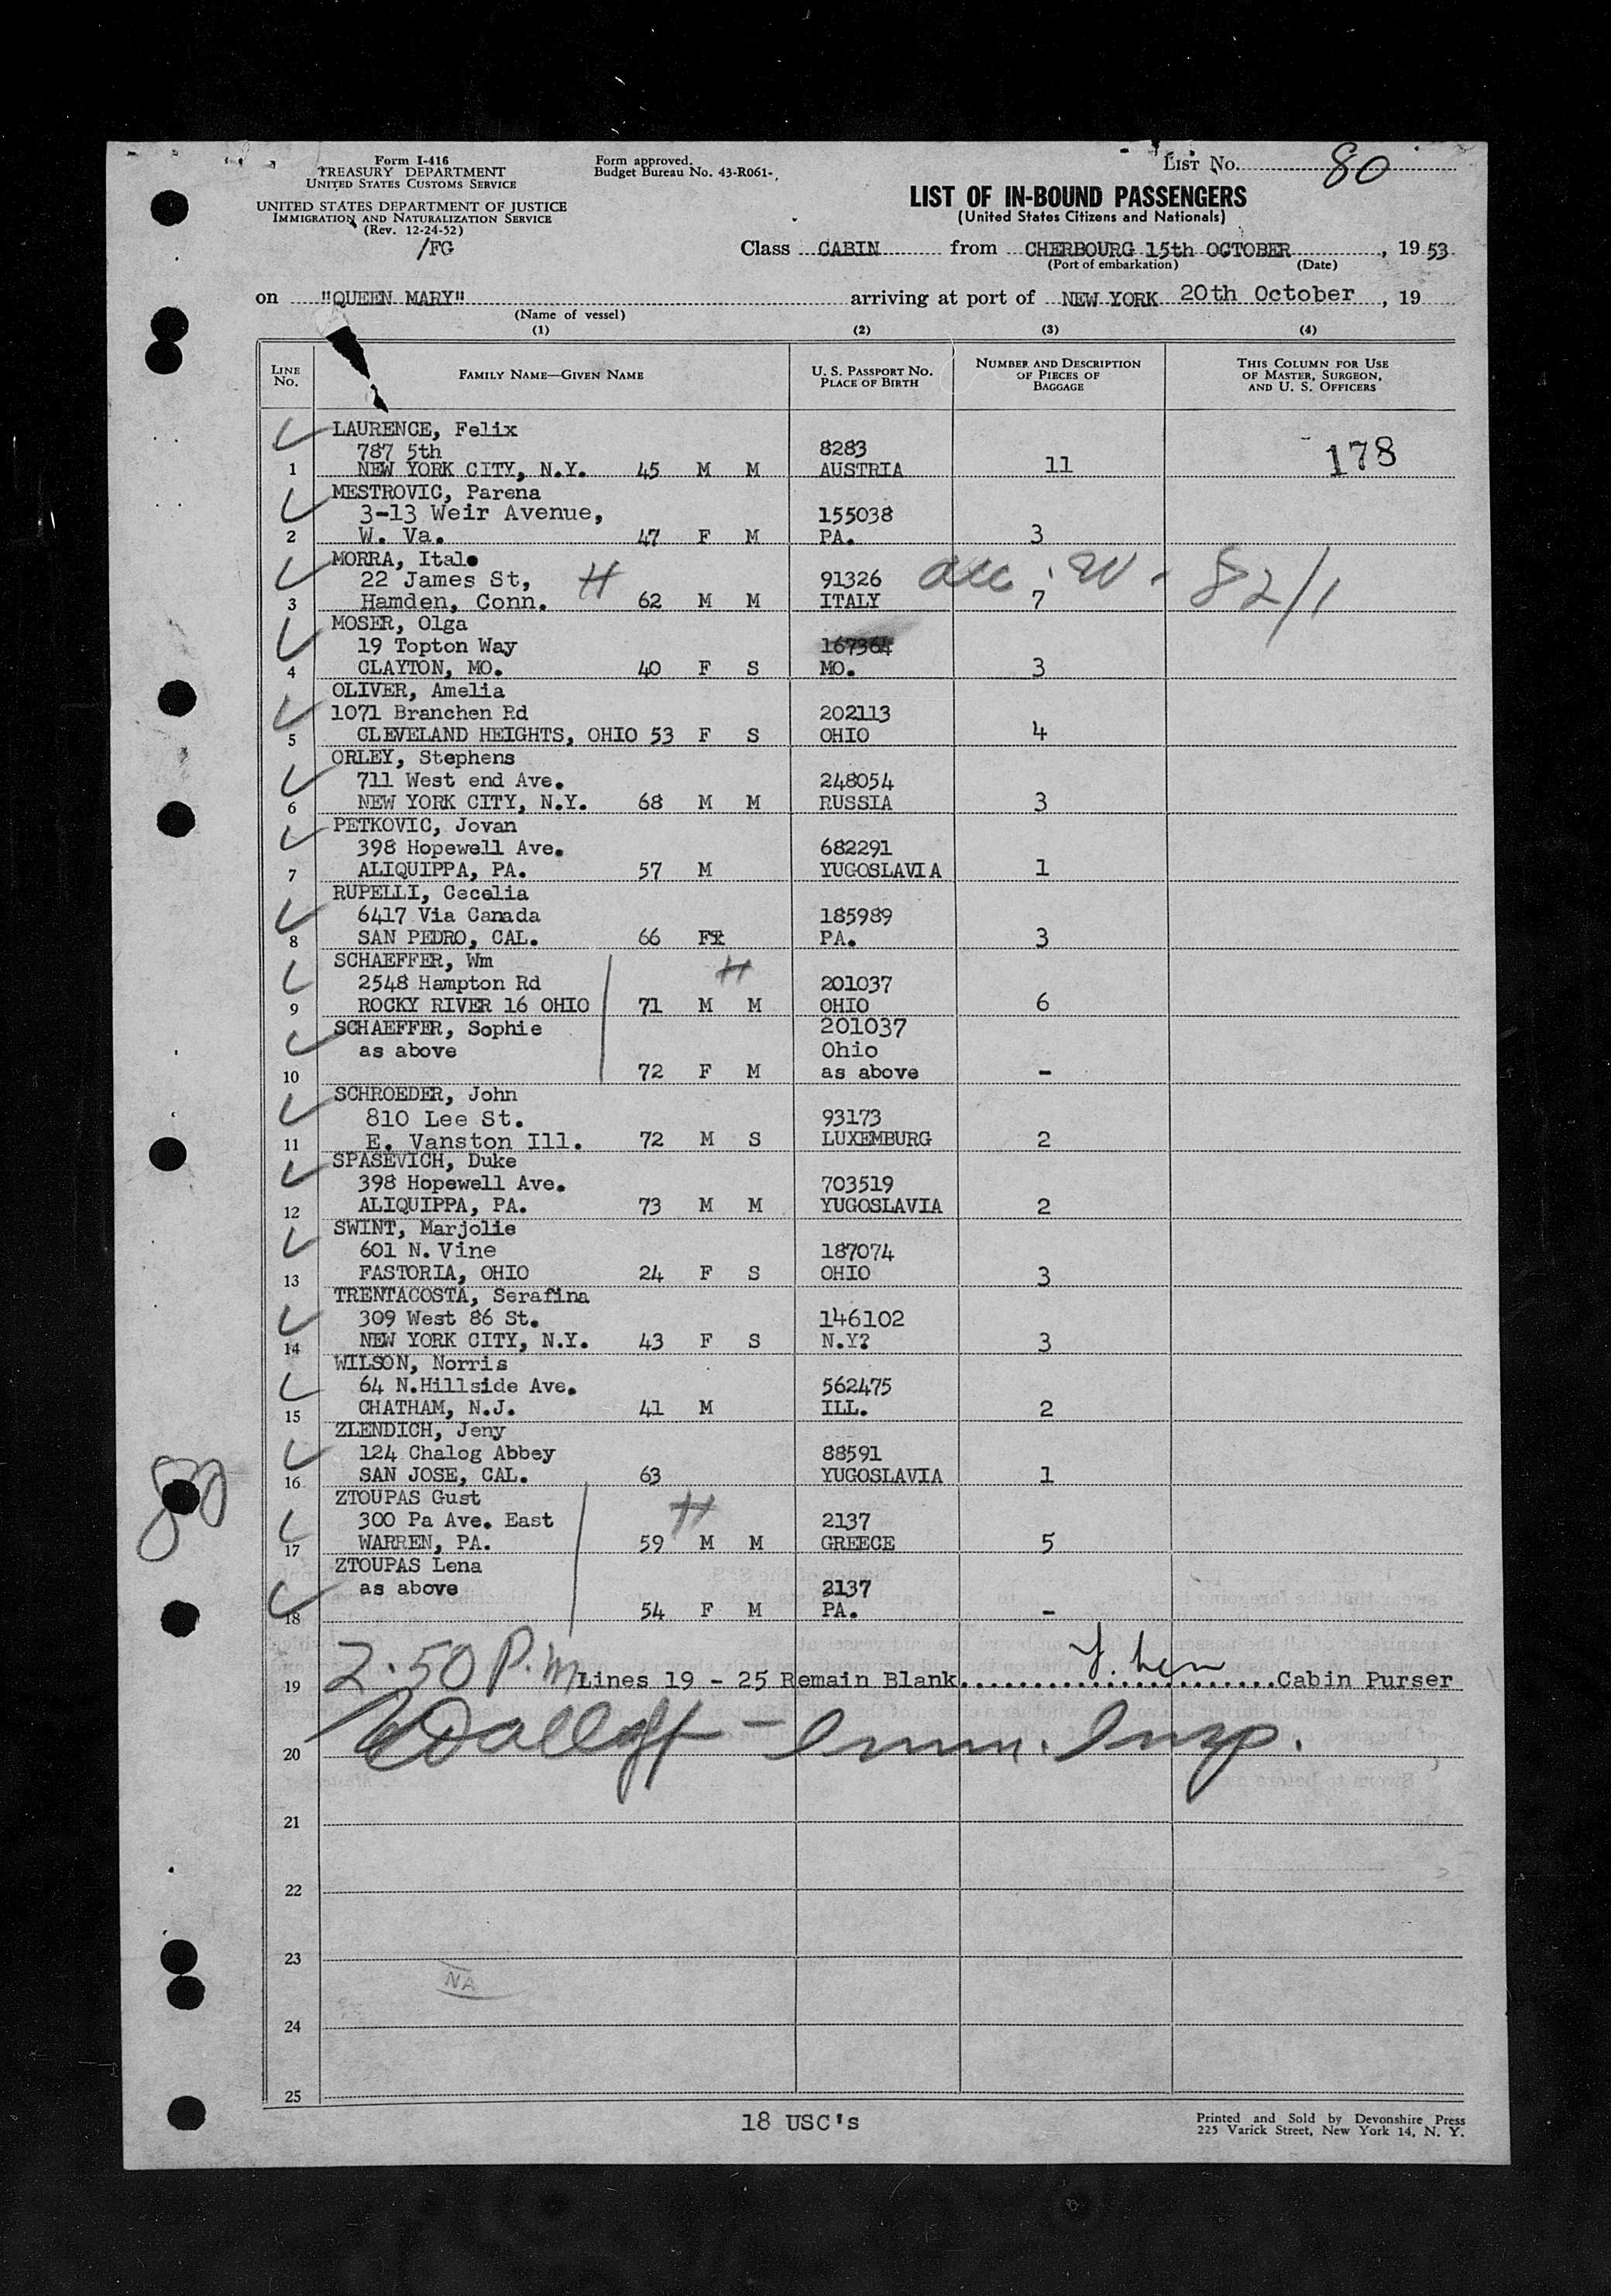 Form I-416
TREASURY DEPARTMENT
UNITED STATES CUSTOMS SERVICE
UNITED STATES DEPARTMENT OF JUSTICE
IMMIGRATION AND NATURALIZATION SERVICE
(Rev. 12-24-52)
/FG
Form approved.
Budget Bureau No. 43-R061-.
LIST No. 80
LIST OF IN-BOUND PASSENGERS
(United States Citizens and Nationals)
Class CABIN from CHERBOURG 15th OCTOBER, 19 53
(Port of embarkation) (Date)
on "QUEEN MARY" arriving at port of NEW YORK 20th October, 19
(Name of vessel)
(1) (2) (3) (4)
LINE No. FAMILY NAME—GIVEN NAME U. S. PASSPORT NO. PLACE OF BIRTH NUMBER AND DESCRIPTION OF PIECES OF BAGGAGE THIS COLUMN FOR USE OF MASTER, SURGEON, AND U. S. OFFICERS
LAURENCE, Felix
787 5th 8283 178
1 NEW YORK CITY, N.Y. 45 M M AUSTRIA 11
MESTROVIC, Parena
3-13 Weir Avenue, 155038
2 W. Va. 47 F M PA. 3
MORRA, Italo
22 James St, H 91326 82/1
3 Hamden, Conn. 62 M M ITALY 7
MOSER, Olga
19 Topton Way 167364
4 CLAYTON, MO. 40 F S MO. 3
OLIVER, Amelia
1071 Branchen Rd 202113
5 CLEVELAND HEIGHTS, OHIO 53 F S OHIO 4
ORLEY, Stephens
711 West end Ave. 248054
6 NEW YORK CITY, N.Y. 68 M M RUSSIA 3
PETKOVIC, Jovan
398 Hopewell Ave. 682291
7 ALIQUIPPA, PA. 57 M YUGOSLAVIA 1
RUPELLI, Cecelia
6417 Via Canada 185989
8 SAN PEDRO, CAL. 66 F PA. 3
SCHAEFFER, Wm H
2548 Hampton Rd 201037
9 ROCKY RIVER 16 OHIO 71 M M OHIO 6
SCHAEFFER, Sophie 201037
as above Ohio
10 72 F M as above -
SCHROEDER, John
810 Lee St. 93173
11 E. Vanston Ill. 72 M S LUXEMBURG 2
SPASEVICH, Duke
398 Hopewell Ave. 703519
12 ALIQUIPPA, PA. 73 M M YUGOSLAVIA 2
SWINT, Marjolie
601 N. Vine 187074
13 FASTORIA, OHIO 24 F S OHIO 3
TRENTACOSTA, Serafina
309 West 86 St. 146102
14 NEW YORK CITY, N.Y. 43 F S N.Y? 3
WILSON, Norris
64 N.Hillside Ave. 562475
15 CHATHAM, N.J. 41 M ILL. 2
ZLENDICH, Jeny
124 Chalog Abbey 88591
16 SAN JOSE, CAL. 63 YUGOSLAVIA 1
80
ZTOUPAS Gust H
300 Pa Ave. East 2137
17 WARREN, PA. 59 M M GREECE 5
ZTOUPAS Lena
as above 2137
18 54 F M PA. -
2.50 P.m
19 Lines 19 - 25 Remain Blank......................Cabin Purser
20 - Imm. Insp.
21
22
23
NA
24
25
18 USC's
Printed and Sold by Devonshire Press
225 Varick Street, New York 14, N. Y.